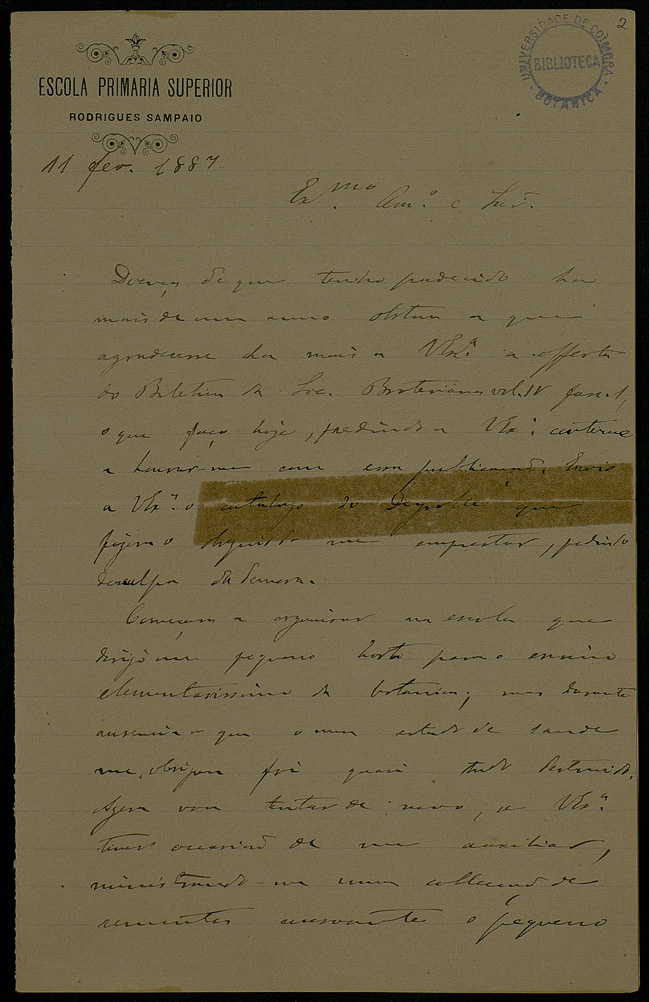 2
UNIVERSIDADE DE COIMBRA
BIBLIOTECA
BOTANICA
ESCOLA PRIMARIA SUPERIOR
RODRIGUES SAMPAIO
11 fev. 1887
Ex.mo Am.º e
Doença de que tenho padecido ha
mais de um anno obstou a que
agradecesse ha mais a VEx.ª a offerta
do Boletim da Soc. Broteriana vol. IV fasc. 1,
o que faço hoje, pedindo a VEx.ª continue
a honrar-me com essa publicação. Envio
a VEx.ª o catalogo do Deyrolle que
fizera o obsequio de me emprestar, pedindo
desculpa da demora.
Começara a organisar na escola que
dirijo um pequeno horto para o ensino
elementarissimo da botanica; mas durante
ausencia a que o meu estado de saude
me obrigou foi quasi tudo destruido.
Agora vou tentar de novo, e VEx.ª
terá occasião de me auxiliar,
ministrando-me uma collecção de
sementes consoante o pequeno